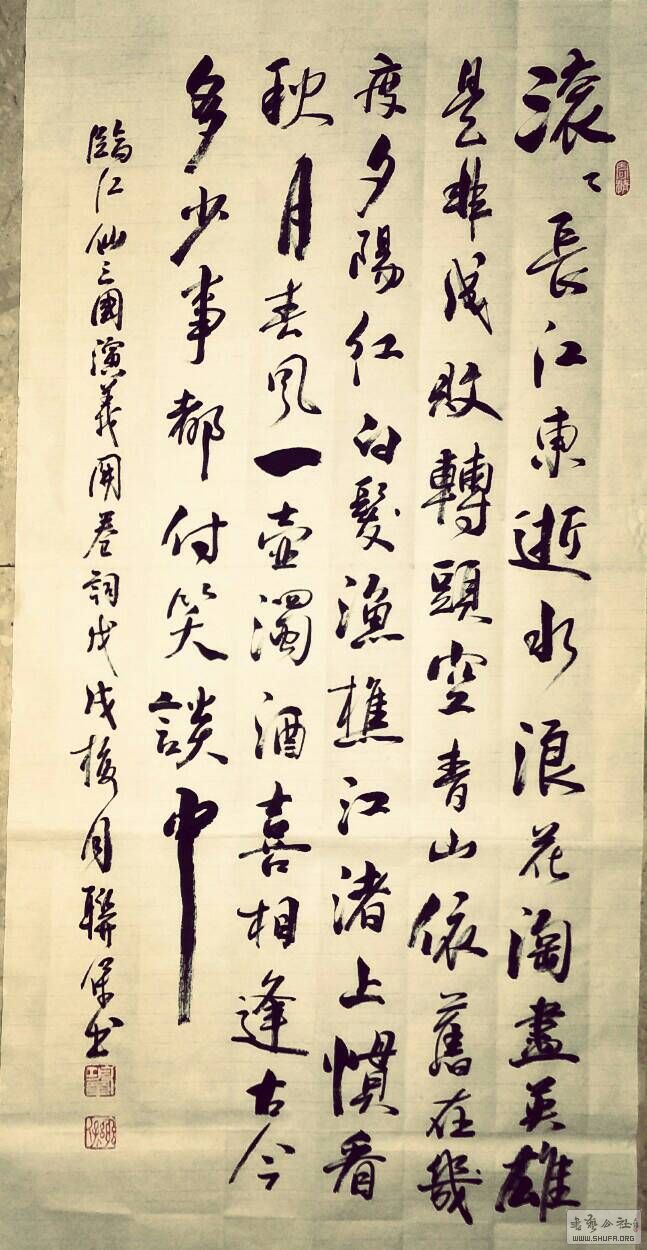 滚〻長江東逝水浪花淘盡英雄
是非成敗轉頭空青山依舊在幾
度夕陽红白髮漁樵江渚上慣看
秋月春风一壶濁酒喜相逢古今
多少事都付笑談中
臨江仙三國演義開卷詞戊戌梅月聯保书
书艺公社
WWW.SHUFA.ORG